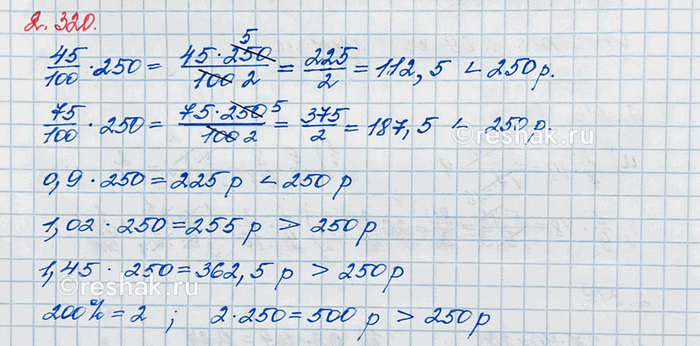 2.320.
45/100 · 250 = 45 · 250 5 / 100 2 = 225/2 = 112,5 < 250 р.
75/100 · 250 = 75 · 250 5 / 100 2 = 375/2 = 187,5 < 250 р.
©reshak.ru
0,9 · 250 = 225 р < 250 р
1,02 · 250 = 255 р > 250 р
1,45 · 250 = 362,5 р > 250 р
©reshak.ru
200% = 2 ; 2 · 250 = 500 р > 250 р